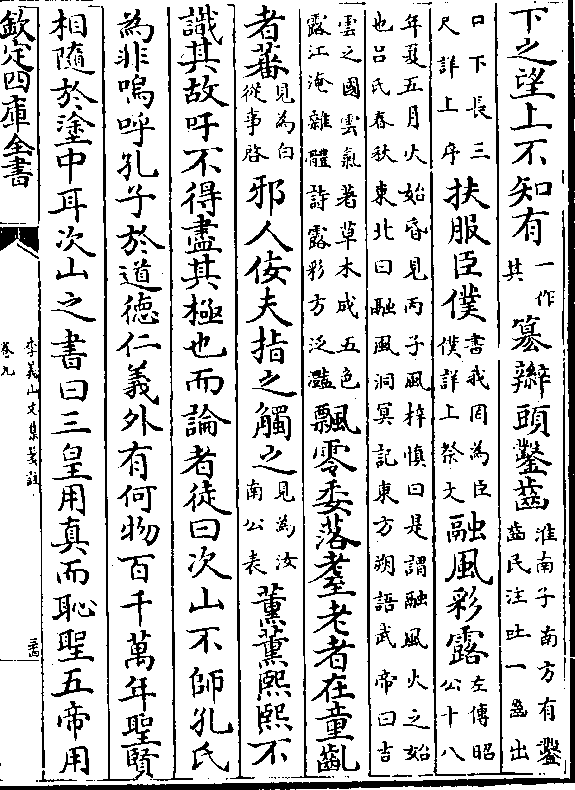 下之望上不知有一作其簒辮頭鑿齒淮南子南方有鑿齒民注吐一齒出
口下長三尺詳上序扶服臣僕書我罔為臣僕詳上祭文融風彩露左傳昭公十八
年夏五月火始昏見丙子風梓慎曰是謂融風火之始也吕氏春秋東北曰融風洞冥記東方朔語武帝曰吉
雲之國雲氣著草木成五色露江淹雜體詩露彩方泛灩飄零委落耋老者在童齓
者蕃見為白從事啓邪人佞夫指之觸之見為汝南公表薰薰熙熙不
識其故吁不得盡其極也而論者徒曰次山不師孔氏
為非嗚呼孔子於道德仁義外有何物百千萬年聖賢
相隨於塗中耳次山之書曰三皇用真而恥聖五帝用
欽定四庫全書
李義山文集箋註
卷九